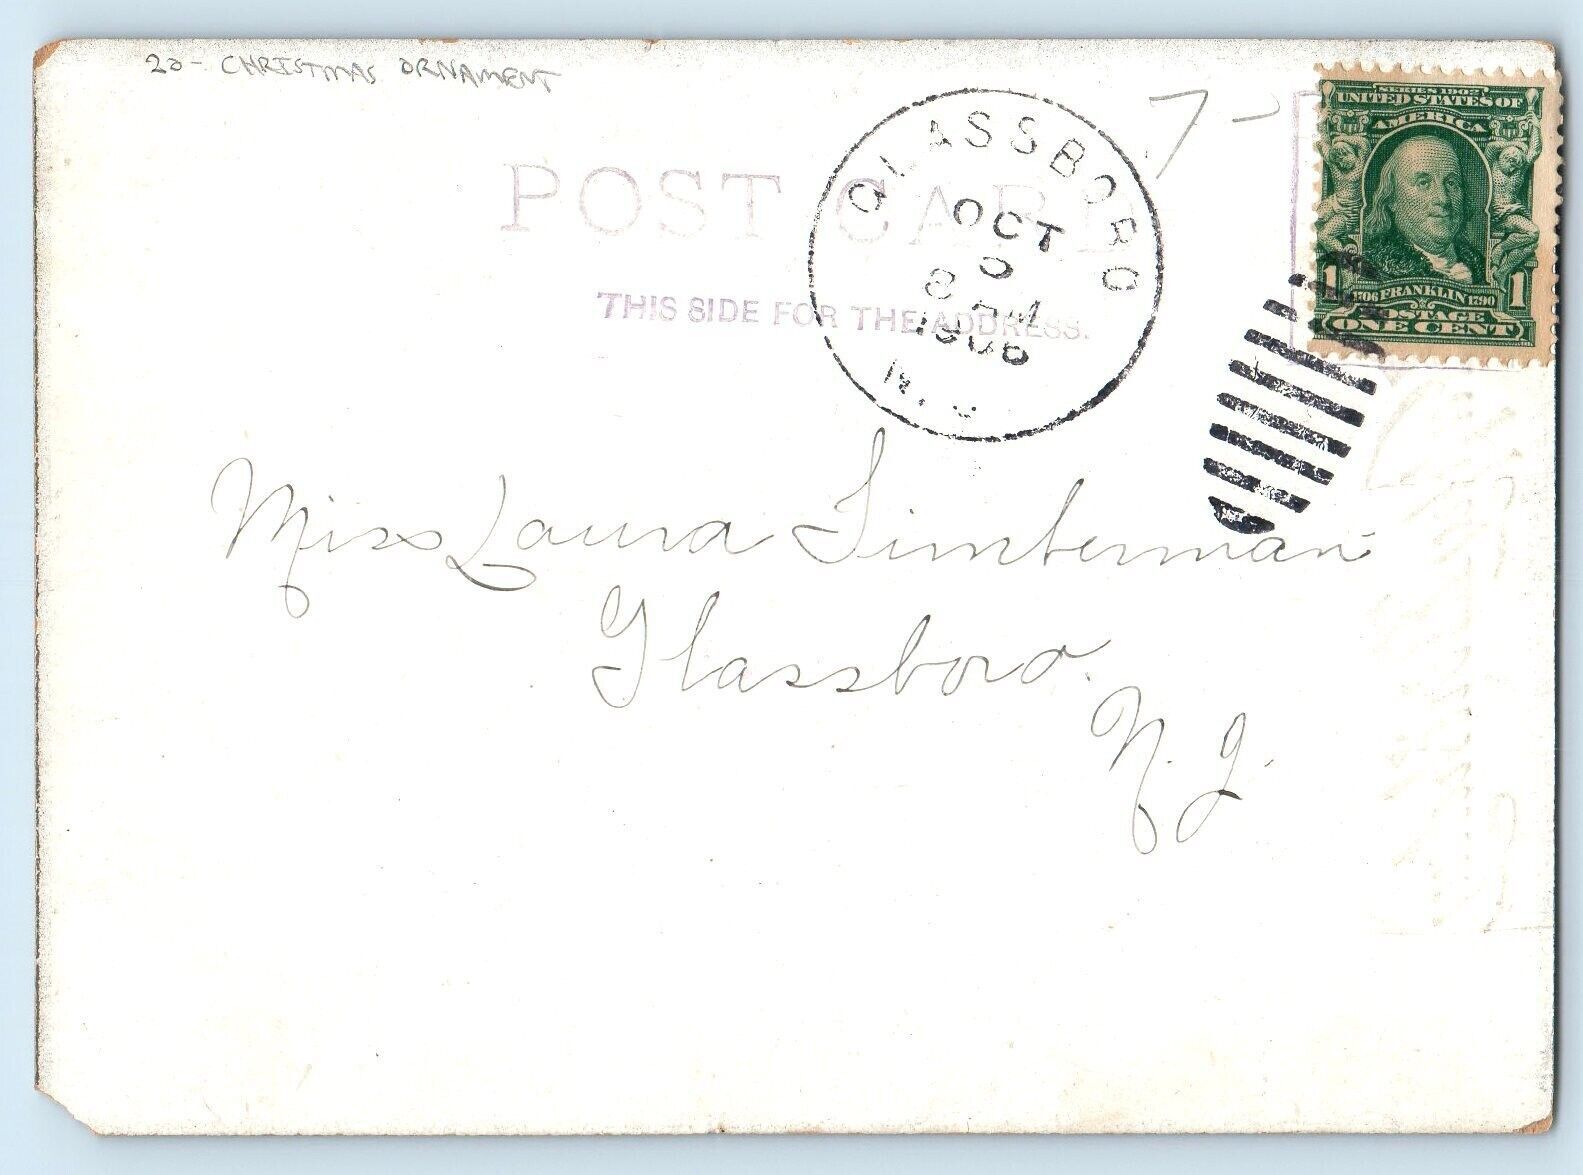 20- CHRISTMAS ORNAMENT
7-
POST CARD
THIS SIDE FOR THE ADDRESS.
GLASSBORO
OCT
8 AM
1906
N.J.
SERIES 1902
UNITED STATES OF
AMERICA
1 1706 FRANKLIN 1790 1
POSTAGE
ONE CENT
Miss Laura Timberman
Glassboro.
N. J.